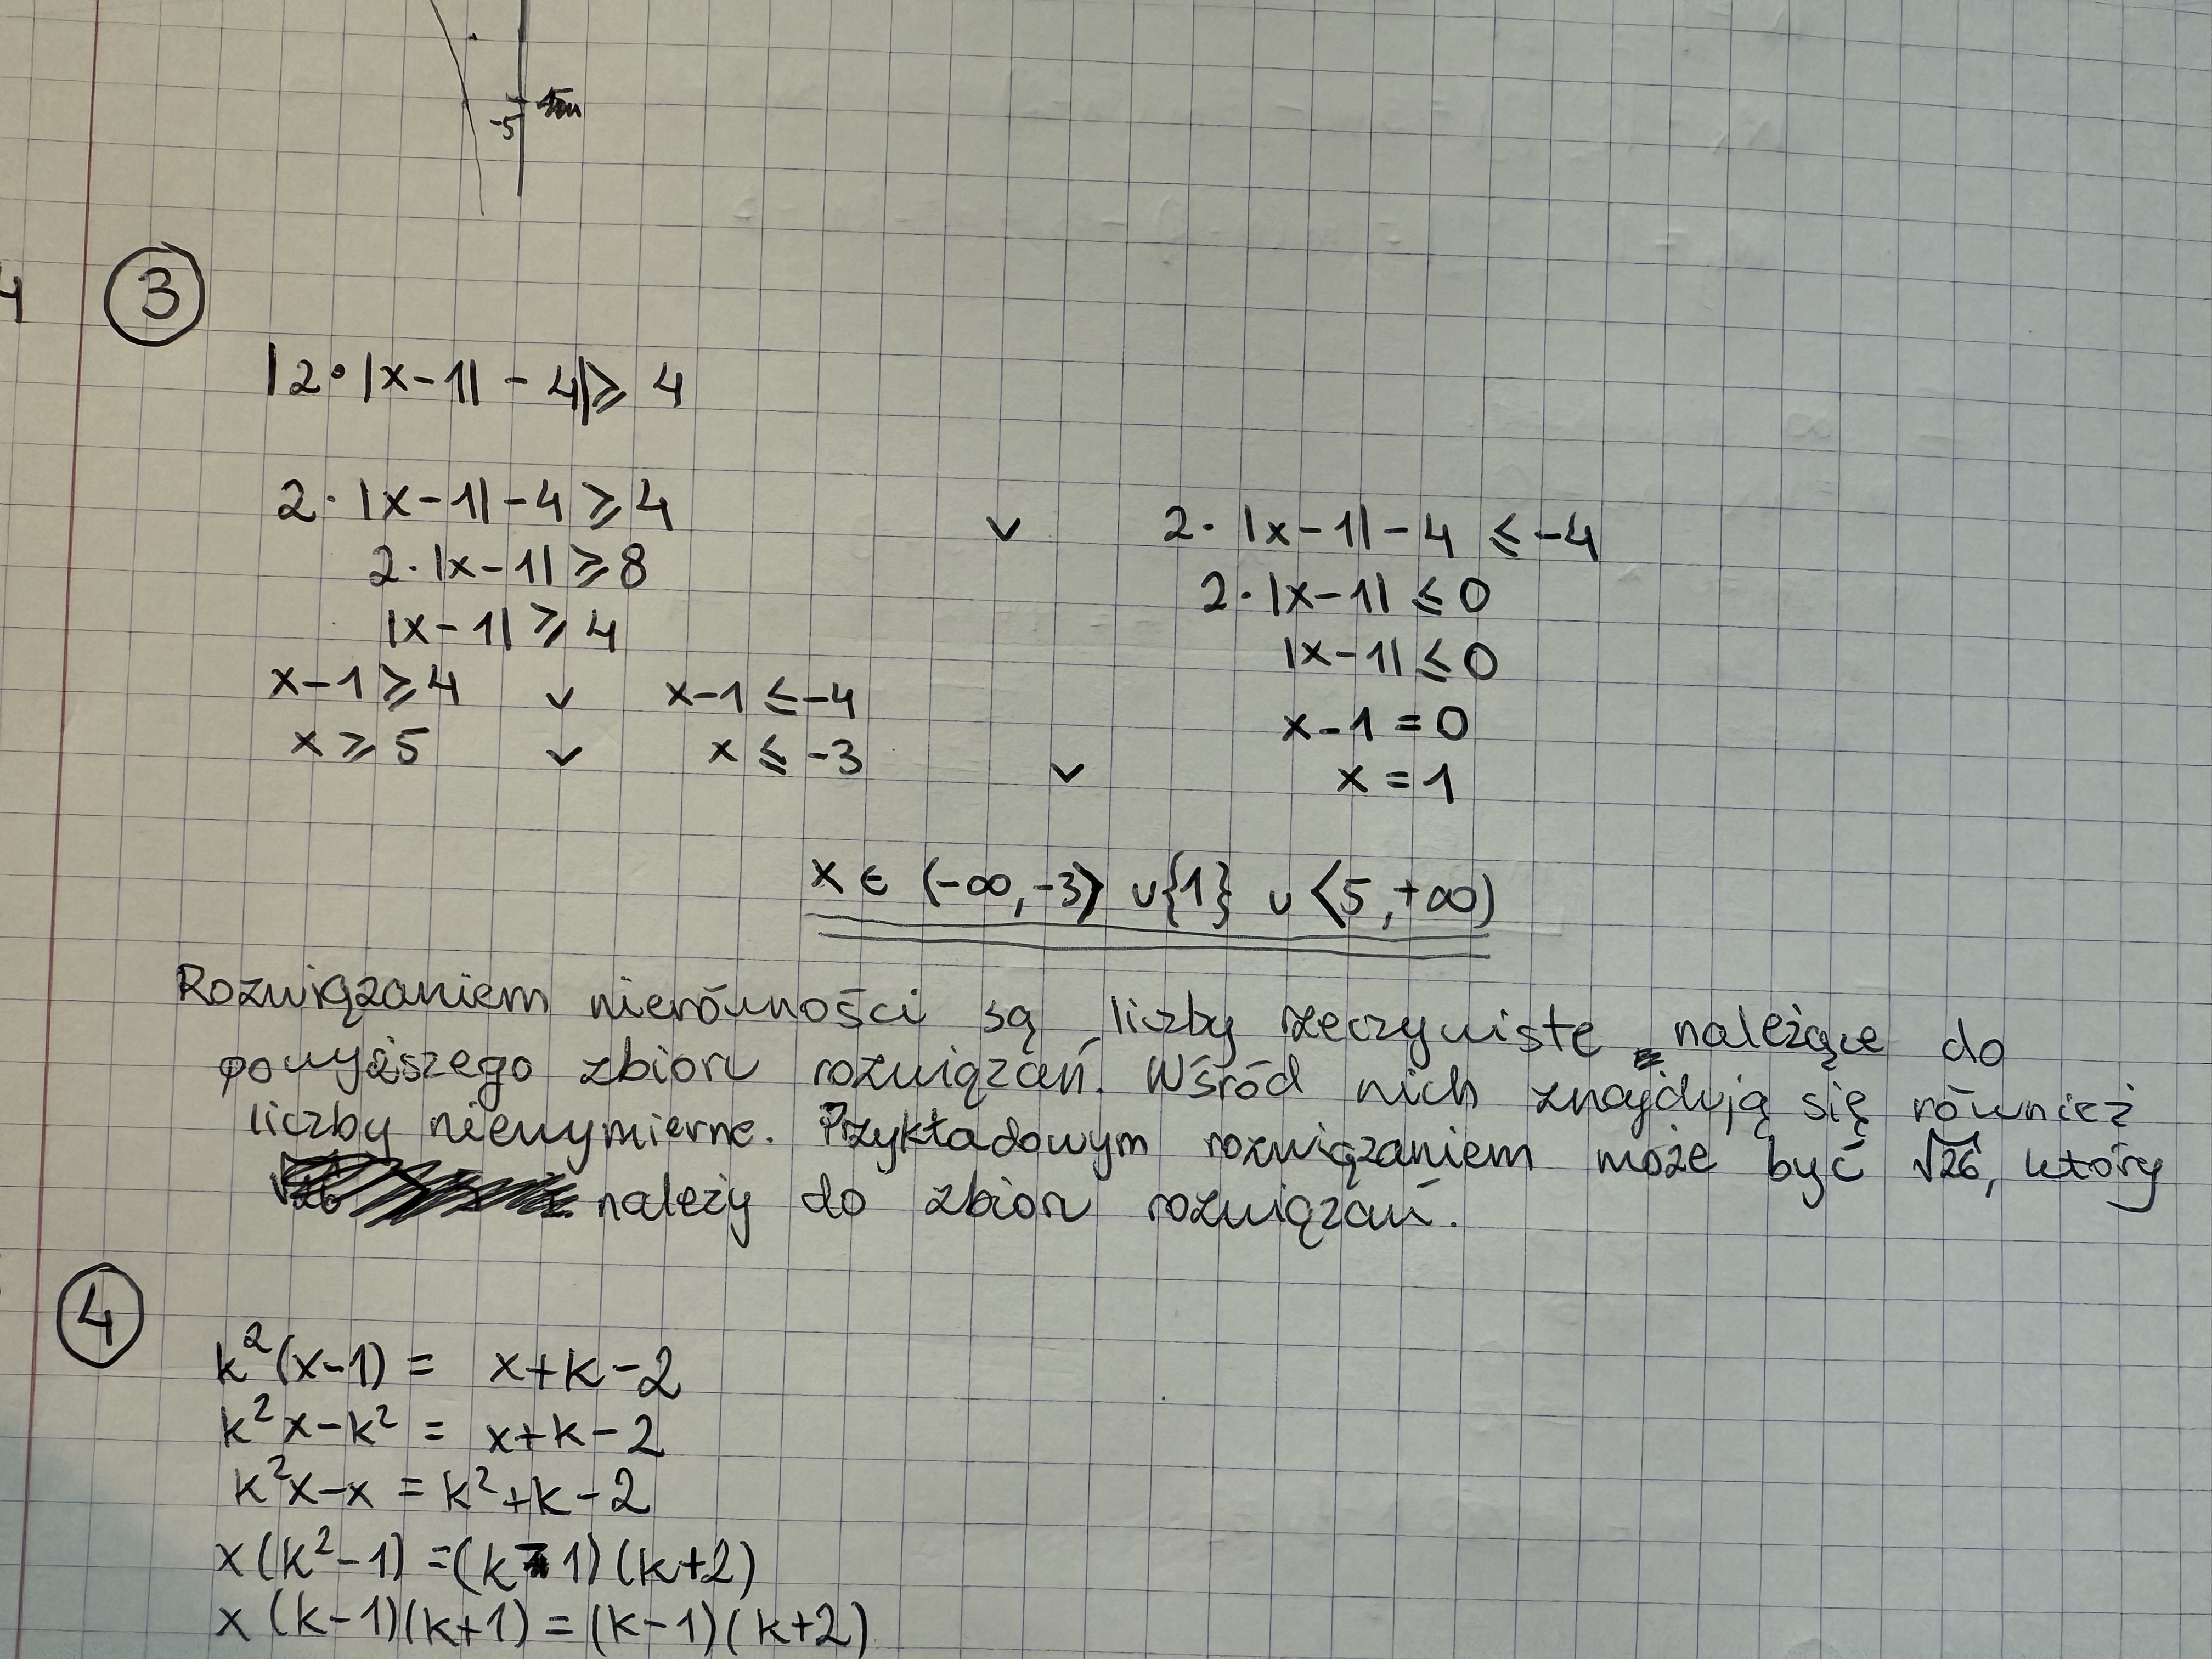 -5
4
3
|2·|x-1| - 4| ≥ 4
2·|x-1|-4 ≥ 4 ∨ 2·|x-1|-4 ≤ -4
2·|x-1| ≥ 8 2·|x-1| ≤ 0
|x-1| ≥ 4 |x-1| ≤ 0
x-1 ≥ 4 ∨ x-1 ≤ -4 x-1 = 0
x ≥ 5 ∨ x ≤ -3 ∨ x = 1
x ∈ (-∞,-3> ∪ {1} ∪ <5,+∞)
Rozwiązaniem nierówności są liczby rzeczywiste należące do
powyższego zbioru rozwiązań. Wśród nich znajdują się również
liczby niewymierne. Przykładowym rozwiązaniem może być √26, który
należy do zbioru rozwiązań.
4
k²(x-1) = x+k-2
k²x-k² = x+k-2
k²x-x = k²+k-2
x(k²-1) = (k-1)(k+2)
x(k-1)(k+1) = (k-1)(k+2)